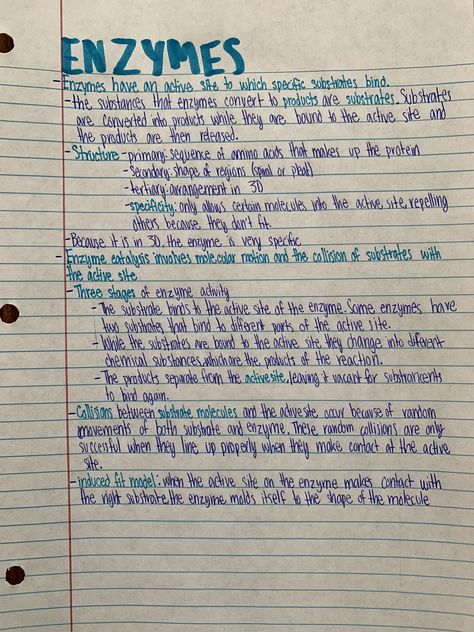 ENZYMES
- Enzymes have an active site to which specific substrates bind.
- the substances that enzymes convert to products are substrates. Substrates
are converted into products while they are bound to the active site and
the products are then released.
- Structure - primary: sequence of amino acids that makes up the protein
- Secondary: shape of regions (spiral or pleat)
- tertiary: arrangement in 3D
- specificity: only allows certain molecules into the active site, repelling
others because they don't fit.
- Because it is in 3D, the enzyme is very specific
- Enzyme catalysis involves molecular motion and the collision of substrates with
the active site
- Three stages of enzyme activity
- The substrate binds to the active site of the enzyme. Some enzymes have
two substrates that bind to different parts of the active site.
- While the substrates are bound to the active site they change into different
chemical substances, which are the products of the reaction.
- The products separate from the active site, leaving it vacant for
to bind again.
- Collisions between substrate molecules and the active site occur because of random
movements of both substrate and enzyme. These random collisions are only
succesful when they line up properly when they make contact at the active
site.
- induced fit model: when the active site on the enzyme makes contact with
the right substrate the enzyme molds itself to the shape of the molecule